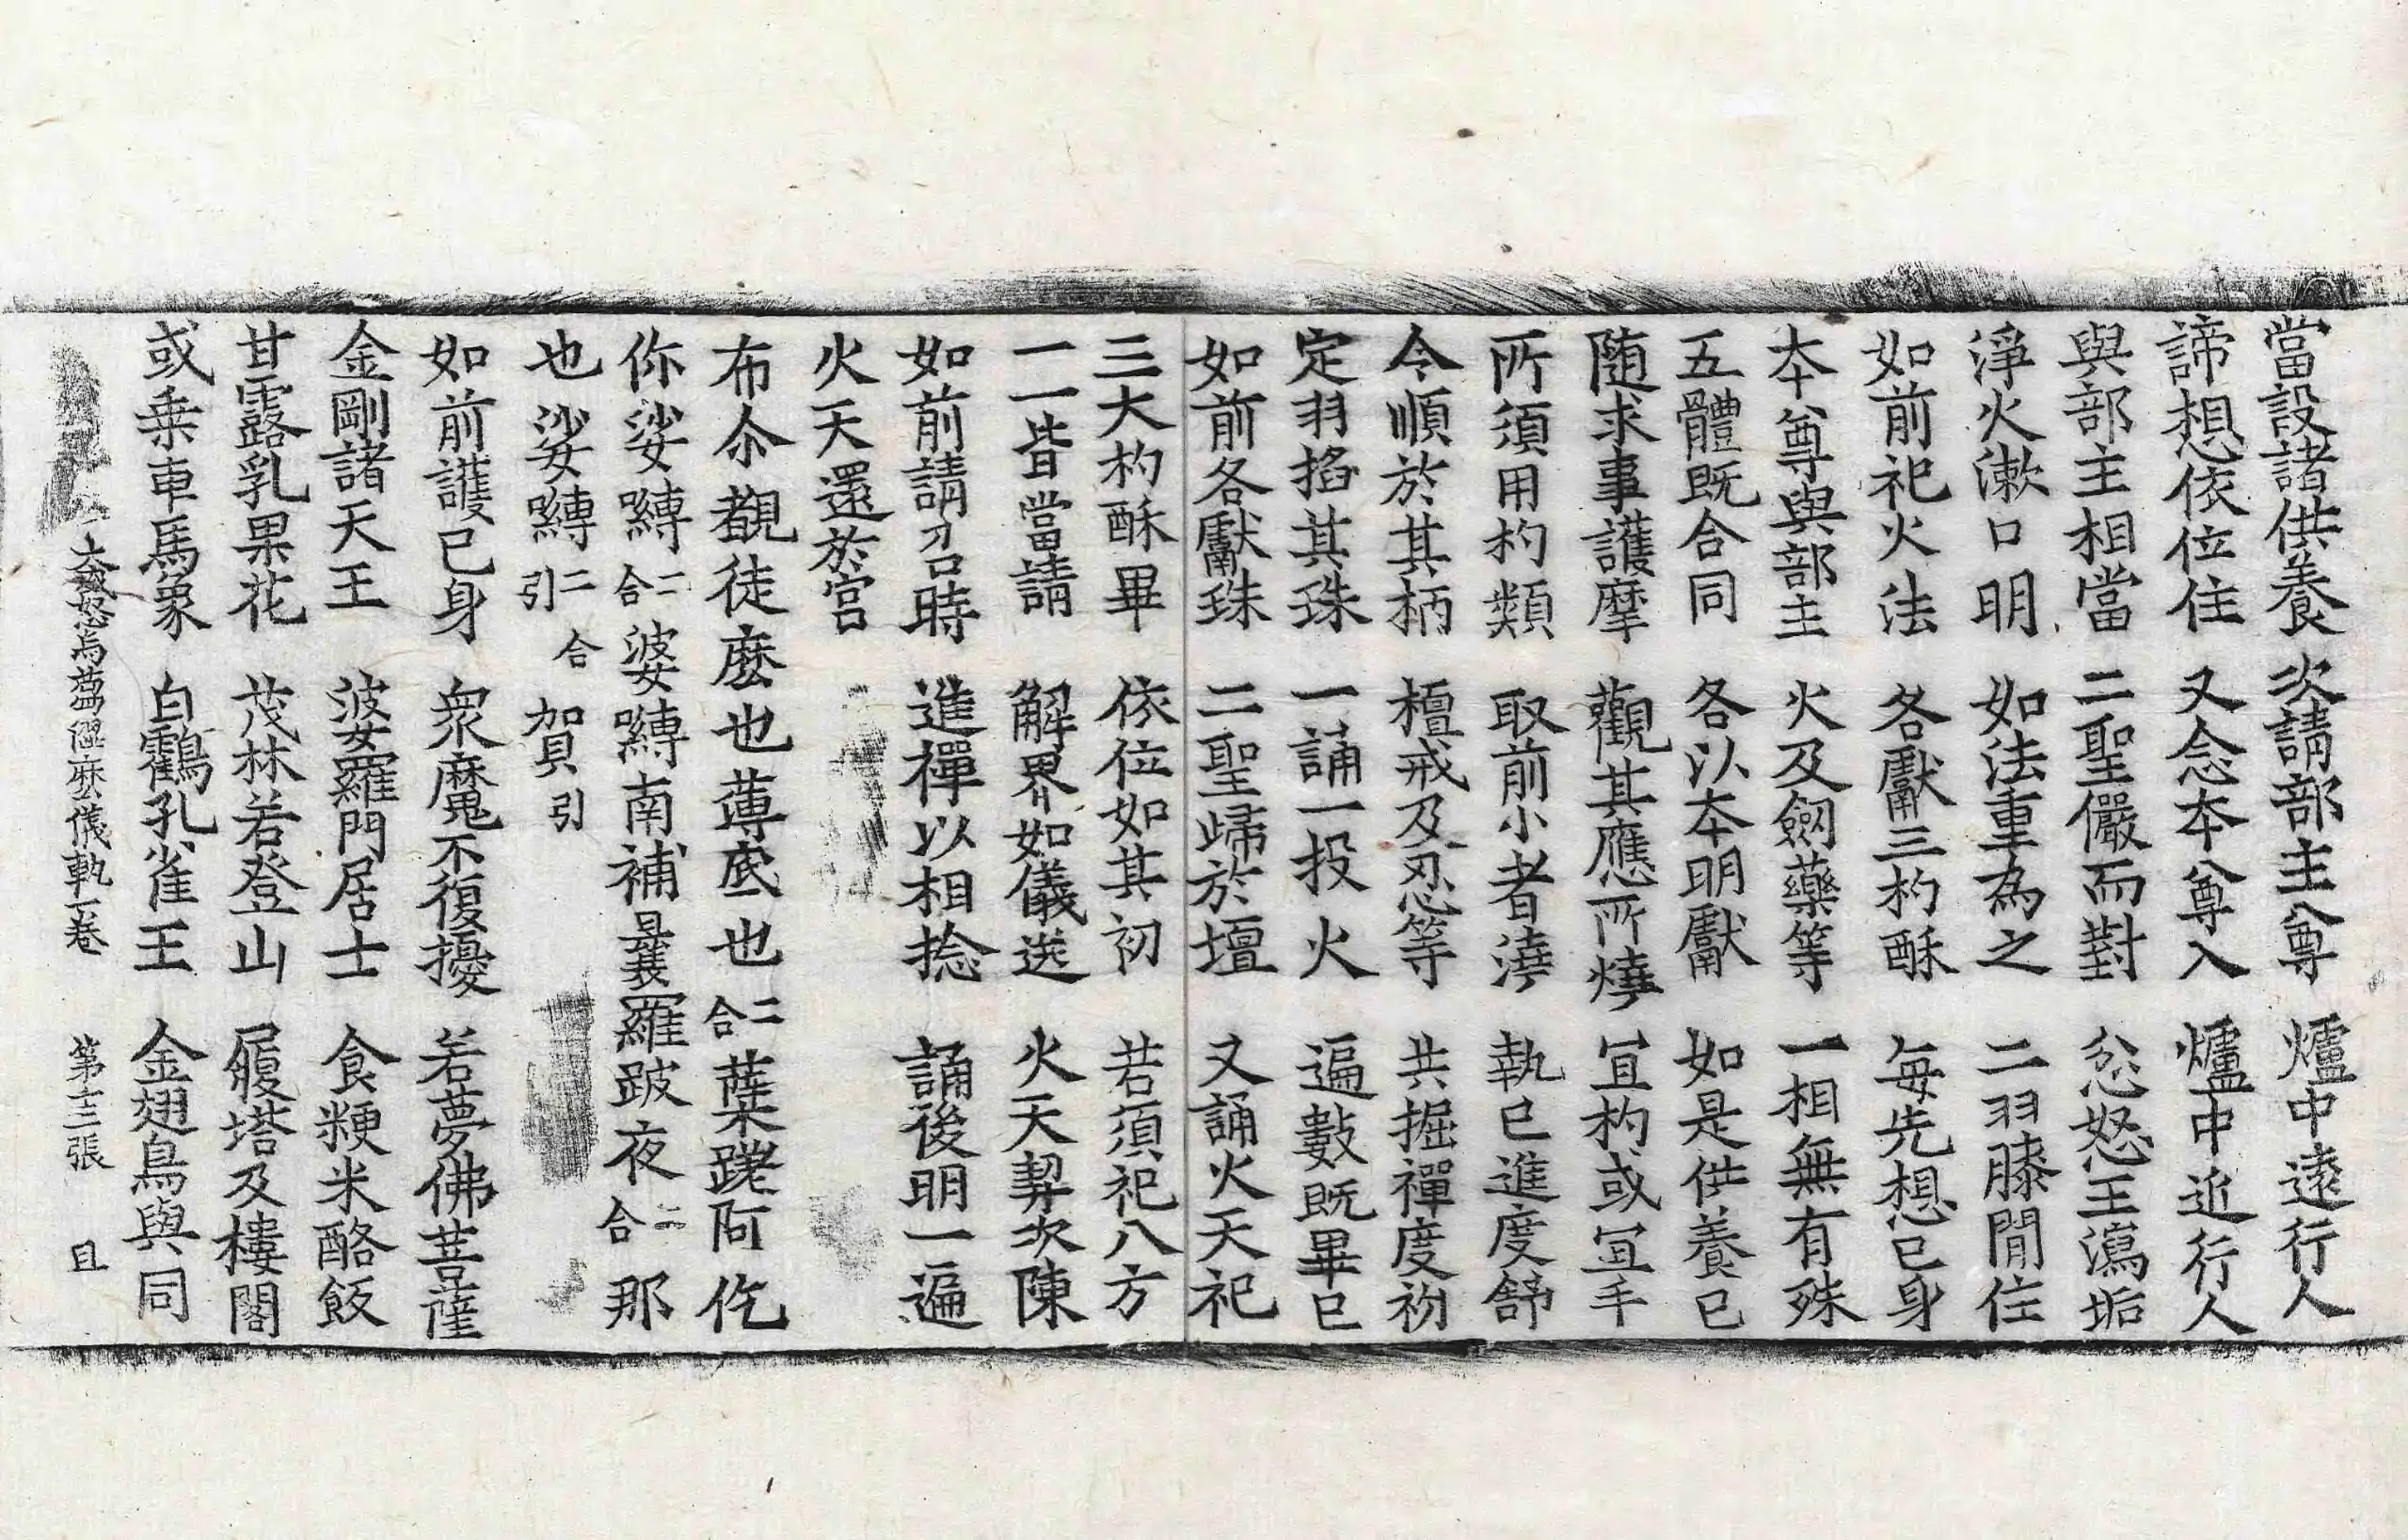 當設諸供養 次請部主尊 爐中遠行人
諦想依位住 又念本尊入 爐中近行人
與部主相當 二聖儼而對 忿怒王瀉垢
淨火漱口明 如法重為之 二羽膝間住
如前祀火法 各獻三杓酥 每先想己身
本尊與部主 火及劒藥等 一相無有殊
五體既合同 各以本明獻 如是供養已
随求事護摩 觀其應所燒 冝杓或冝手
所須用杓類 取前小者澆 執已進度舒
令順於其柄 檀戒及忍等 共握禪度衸
定羽掐其珠 一誦一投火 遍數既畢已
如前各獻珠 二聖歸於壇 又誦火天祀
三大杓酥畢 依位如其初 若須祀八方
一一皆當請 解界如儀送 火天契次陳
如前請召時 進禪以相捻 誦後明一遍
火天還於宮
布尒觀徒麽也薄底也二合葉蹉阿仡
你娑嚩二合婆嚩南補曩羅跛夜二合那
也娑嚩二合引賀引
如前護己身 衆魔不復擾 若夢佛菩薩
金剛諸天王 婆羅門居士 食粳米酪飯
甘露乳果花 茂林若登山 履塔及樓閣
或乗車馬象 白鶴孔雀王 金翅鳥與同
大威怒烏芻澁麽儀軌一卷 第十三張 且